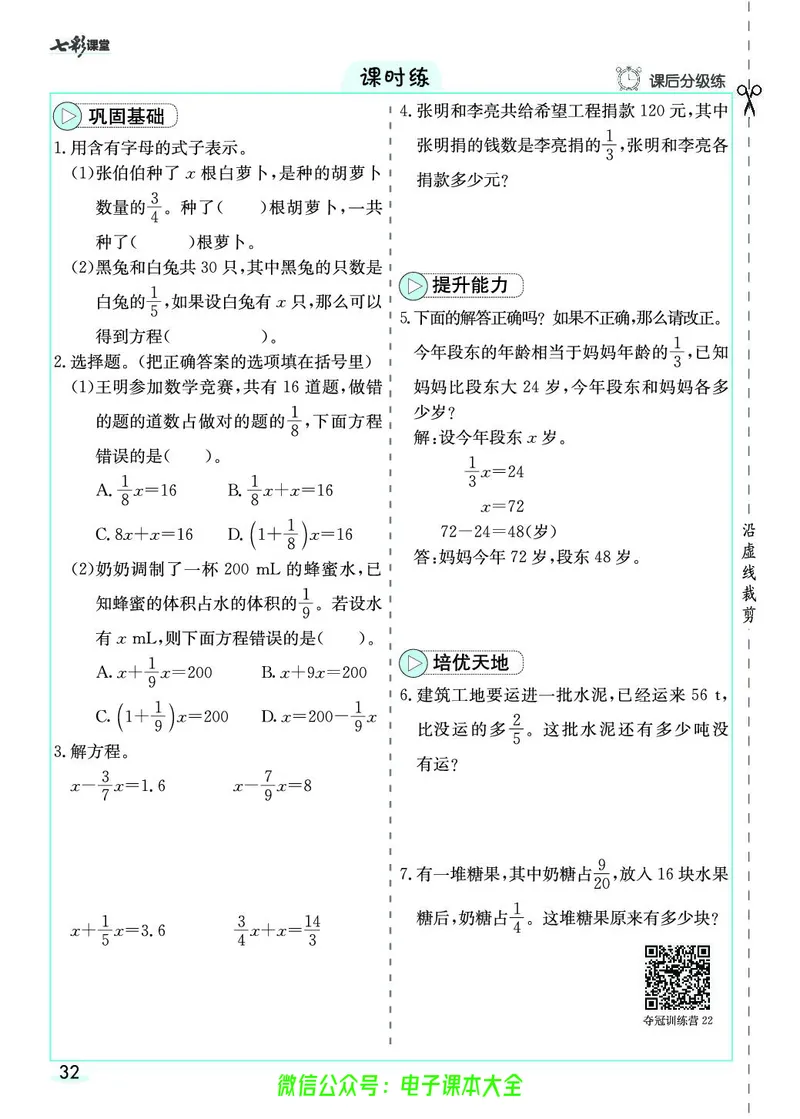 七彩课堂
课时练
课后分级练
巩固基础
1.用含有字母的式子表示。
(1)张伯伯种了 x 根白萝卜,是种的胡萝卜
数量的 3/4 。种了(　　)根胡萝卜,一共
种了(　　)根萝卜。
(2)黑兔和白兔共 30 只,其中黑兔的只数是
白兔的 1/5 ,如果设白兔有 x 只,那么可以
得到方程(　　)。
2.选择题。(把正确答案的选项填在括号里)
(1)王明参加数学竞赛,共有 16 道题,做错
的题的道数占做对的题的 1/8 ,下面方程
错误的是(　　)。
A. 1/8 x=16　B. 1/8 x+x=16
C. 8x+x=16　D. (1+1/8)x=16
(2)奶奶调制了一杯 200 mL 的蜂蜜水,已
知蜂蜜的体积占水的体积的 1/9 。若设水
有 x mL,则下面方程错误的是(　　)。
A. x+1/9 x=200　B. x+9x=200
C. (1+1/9)x=200　D. x=200-1/9 x
3.解方程。
x-3/7 x=1.6　x-7/9 x=8
x+1/5 x=3.6　3/4 x+x=14/3
4.张明和李亮共给希望工程捐款 120 元,其中
张明捐的钱数是李亮捐的 1/3 ,张明和李亮各
捐款多少元?
提升能力
5.下面的解答正确吗? 如果不正确,那么请改正。
今年段东的年龄相当于妈妈年龄的 1/3 ,已知
妈妈比段东大 24 岁,今年段东和妈妈各多
少岁?
解:设今年段东 x 岁。
1/3 x=24
x=72
72-24=48(岁)
答:妈妈今年 72 岁,段东 48 岁。
培优天地
6.建筑工地要运进一批水泥,已经运来 56 t,
比没运的多 2/5 。这批水泥还有多少吨没
有运?
7.有一堆糖果,其中奶糖占 9/20 ,放入 16 块水果
糖后,奶糖占 1/4 。这堆糖果原来有多少块?
夺冠训练营 22
沿虚线裁剪
32
微信公众号：电子课本大全